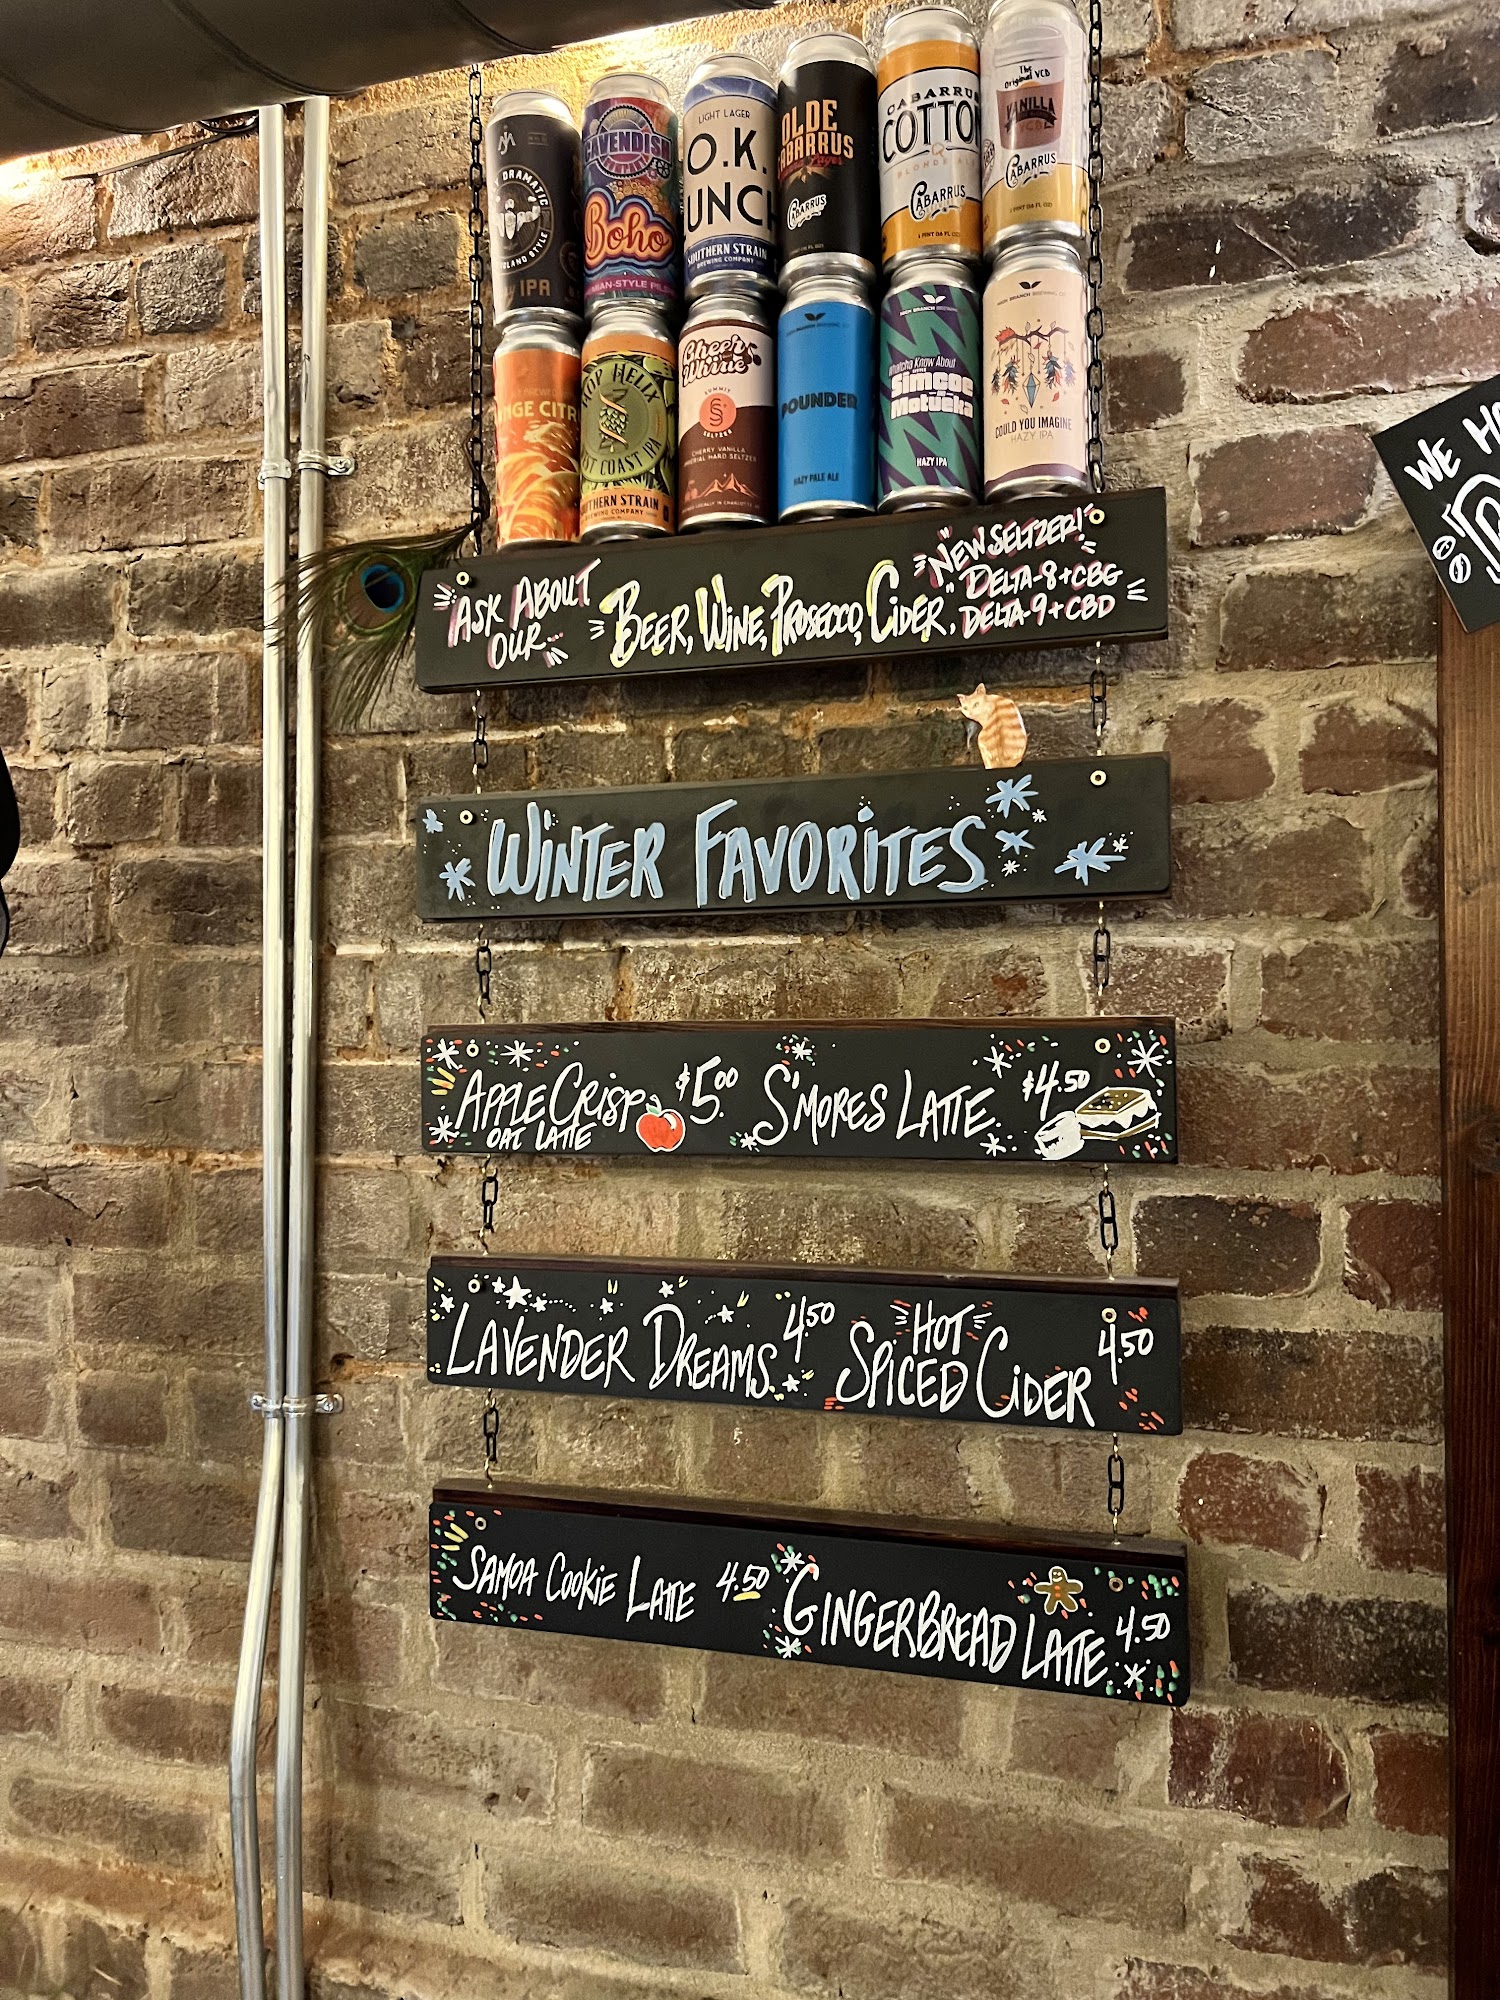 DRAMATIC
IPA
CAVENDISH
Boho
LIGHT LAGER
O.K.
SOUTHERN STRAIN
BREWING COMPANY
OLDE
CABARRUS
CABARRUS
CABARRUS
COTTON
BLONDE ALE
CABARRUS
1 PINT 0.6 FL OZ
The
Original VCB
VANILLA
VCB
CABARRUS
1 PINT 0.6 FL OZ
HOP HELIX
COAST IPA
BREWING COMPANY
Cheer
Whine
SUMMIT
S
SELTZER
CHERRY VANILLA
HARD SELTZER
POUNDER
HAZY PALE ALE
HIGH BRANCH BREWING
Whatcha Know About
Simcoe
Motueka
HAZY IPA
HIGH BRANCH BREWING CO
COULD YOU IMAGINE
HAZY IPA
ASK ABOUT
OUR...
BEER, WINE, PROSECCO, CIDER,
"NEW SELTZER!"
DELTA-8+CBG
DELTA-9+CBD
WINTER FAVORITES
APPLE CRISP
OAT LATTE
$5.00
S'MORES LATTE
$4.50
LAVENDER DREAMS
4.50
HOT
SPICED CIDER
4.50
SAMOA COOKIE LATTE
4.50
GINGERBREAD LATTE
4.50
WE